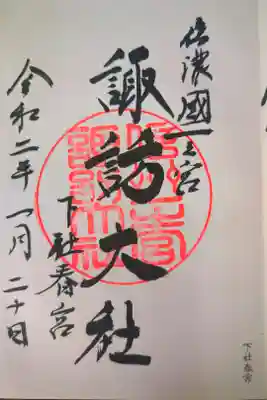 信濃國一之宮
諏訪大社
下社春宮
令和二年一月二十日
下社春宮